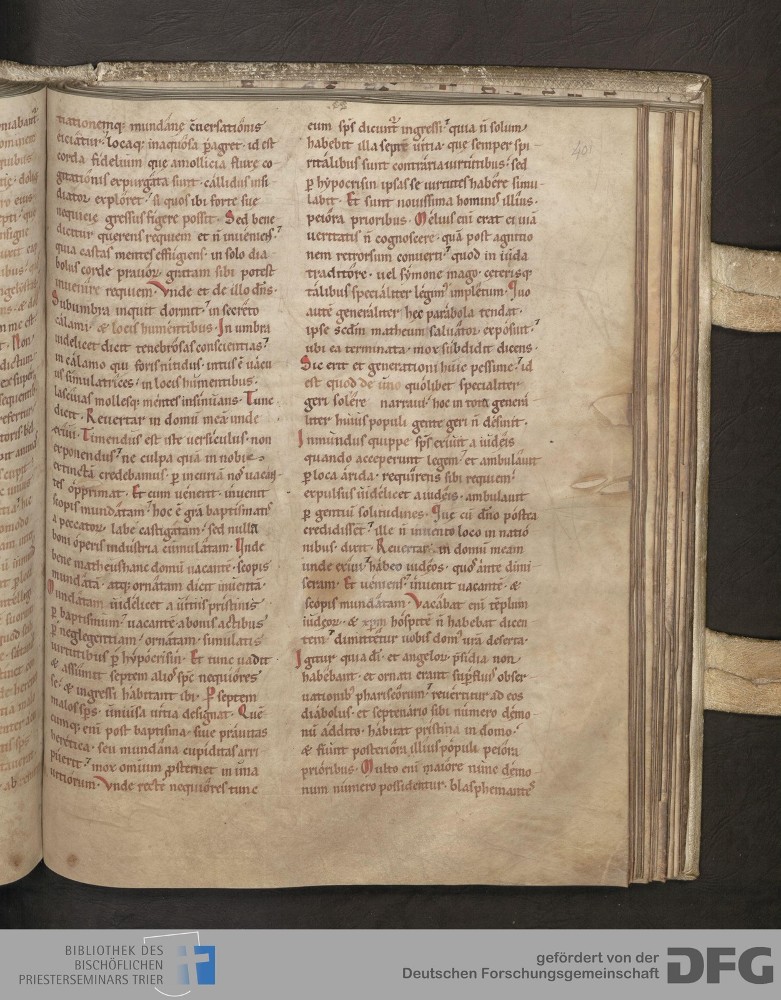 nationemq; mundane c̄uersationis
eiciatur. locaq; inaquosa pagret. id est
corda fidelium que a mollicia fluxe co
gitationis expurgata sunt. callidus insi
diator exploret. si quos ibi forte sue
nequicie gressus figere possit. Sed bene
dicitur querens requiem et n̄ inueniens.
quia castas mentes effugiens. in solo dia
bolus corde prauoꝝ gratam sibi potest
inuenire requiem. Vnde et de illo dn̄s.
Sub umbra inquit dormit. in secreto
calami. & locis humentibus. In umbra
uidelicet dicit tenebrosas conscientias
in calamo qui foris nitidus. intus ē uacu
us simulatrices. in locis humentibus.
lasciuas mollesq; mentes insinuans. Tunc
dicit. Reuertar in domū meā unde
exiui. Timendus est iste uersiculus. non
exponendus. ne culpa quā in nobis
extinctā credebamus. p incuriā nos uacan
tes opprimat. Et cum uenerit. inuenit
scopis mundatam. hoc ē gr̄a baptismatis
a peccatoꝝ labe castigatam. sed nulla
boni operis industria cumulatam. Unde
bene matheus hanc domū uacantē. scopis
mundatā. atq; ornatam dicit inuentā.
Mundatam uidelicet a uitiis pristinis
p baptismum. uacantē a bonis actibus
p neglegentiam. ornatam. simulatis
uirtutibus p hypocrisin. Et tunc uadit
& assumit septem alios sp̄c nequiores
se. & ingressi habitant ibi. P septem
malos sp̄s. uniuersa uitia designat. Que
cumq; enī post baptisma. siue prauitas
heretica. seu mundana cupiditas arri
puerit. mox omnium p̱sternet in ima
uitiorum. Vnde recte nequiores tunc
eum sp̄s dicunt᷑ ingressi. quia n̄ solum
habebit illa septē uitia. que semper spi
ritalibus sunt contraria uirtutibus. sed
p hypocrisin ipsas se uirtutes habere simu
labit. Et sunt nouissima hominis illius.
peiora prioribus. Melius enī erat ei uiā
ueritatis n̄ cognoscere. quā post agnitio
nem retrorsum conuerti. quod in iuda
traditore. uel symone mago. ceterisq;
talibus specialiter legim᷒ impletum. Quo
autē generaliter hec parabola tendat.
ipse sc̄dm matheum saluator exposuit.
ubi ea terminata. mox subdidit dicens.
Sic erit et generationi huic pessime. id
est quod de uno quolibet specialiter
geri solere narraui. hoc in tota genera
liter huius populi gente geri n̄ desinit.
Inmundus quippe sp̄s exiuit a iudeis
quando acceperunt legem. et ambulauit
p loca arida. requirens sibi requiem.
expulsus uidelicet a iudeis. ambulauit
p gentiū solitudines. Que cū dn̄o postea
credidissēt. ille n̄ inuento loco in natio
nibus. dixit. Reuertar in domū meam
unde exiui. habeo iudeos. quos ante dimi
seram. Et ueniens. inuenit uacantē. &
scopis mundatam. Vacabat enī templum
iudeoꝝ. & xp̄m hospitē n̄ habebat dicen
tem. dimittetur uobis dom᷒ ur̄a deserta.
Igitur quia di᷒ et angeloꝝ p̱sidia non
habebant. et ornati erant sup̱fluis obser
uationib᷒ phariseorum. reuertitur ad eos
diabolus. et septenario sibi numero demo
nū addito. habitat pristina in domo.
& fiunt posteriora illius populi peiora
prioribus. Multo enī maiore nunc demo
num numero possidentur. blasphemantes
401
BIBLIOTHEK DES
BISCHÖFLICHEN
PRIESTERSEMINARS TRIER
gefördert von der
Deutschen Forschungsgemeinschaft
DFG